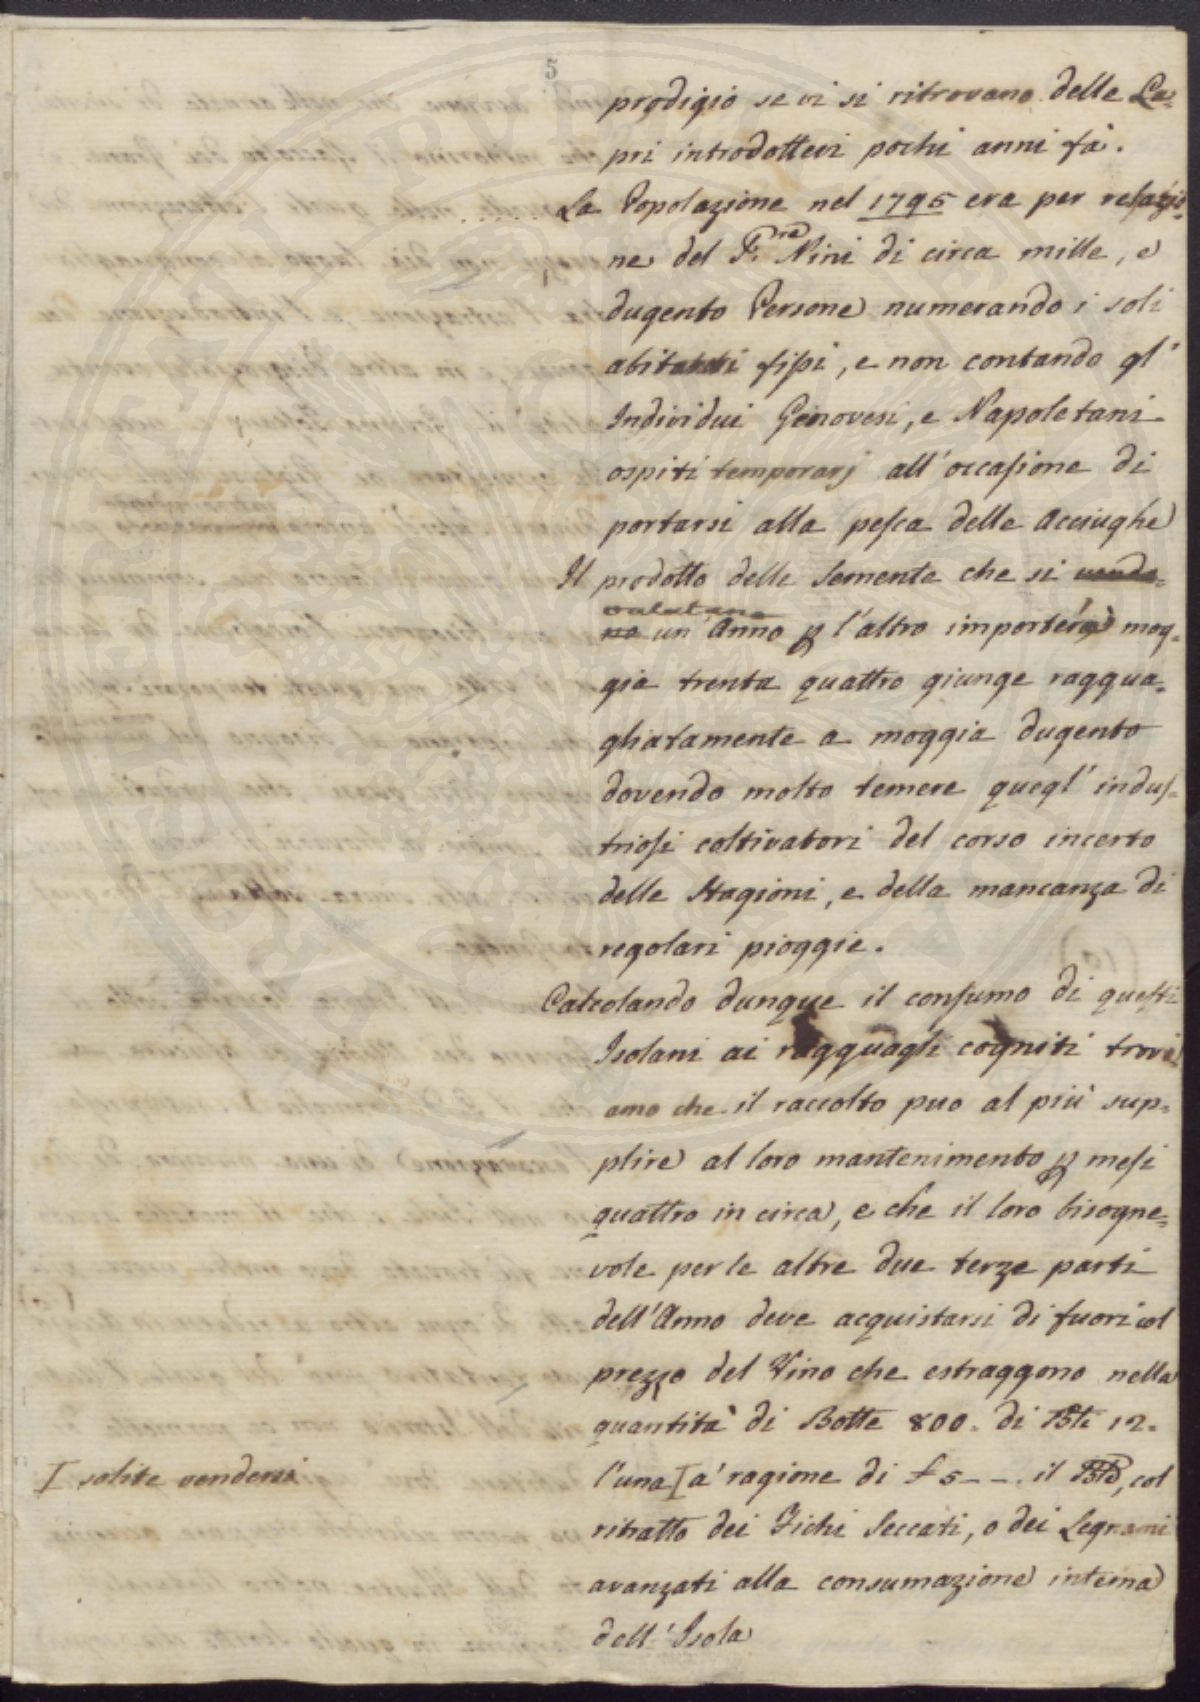 5
prodigio se vi si ritrovano delle Le=
pri introdottevi pochi anni fà.
La Popolazione nel 1795 era per relazio=
ne del Nini di circa mille, e
dugento Persone numerando i soli
abitanti fissi, e non contando gl'
Individui Genovesi, e Napoletani
ospiti temporarj all'occasione di
portarsi alla pesca delle Acciughe
Il prodotto delle Semente che si vendo=
valutano
no un'Anno p l'altro importerà mog=
gia trenta quattro giunge raggua=
gliatamente a moggia dugento
dovendo molto temere quegl'indus=
triosi coltivatori del corso incerto
delle Stagioni, e della mancanza di
regolari pioggie.
Calcolando dunque il consumo di questi
Isolani ai ragguagli cogniti trovi
amo che il raccolto puo al più sup=
plire al loro mantenimento p mesi
quattro in circa, e che il loro bisogne=
vole per le altre due terze parti
dell'Anno deve acquistarsi di fuori col
prezzo del Vino che estraggono nella
quantità di Botte 800. di Bli 12.
I solite vendersi
l'una I a' ragione di £ 5 - - . il col
ritratto dei Fichi Seccati, o dei Legnami
avanzati alla consumazione interna
dell'Isola